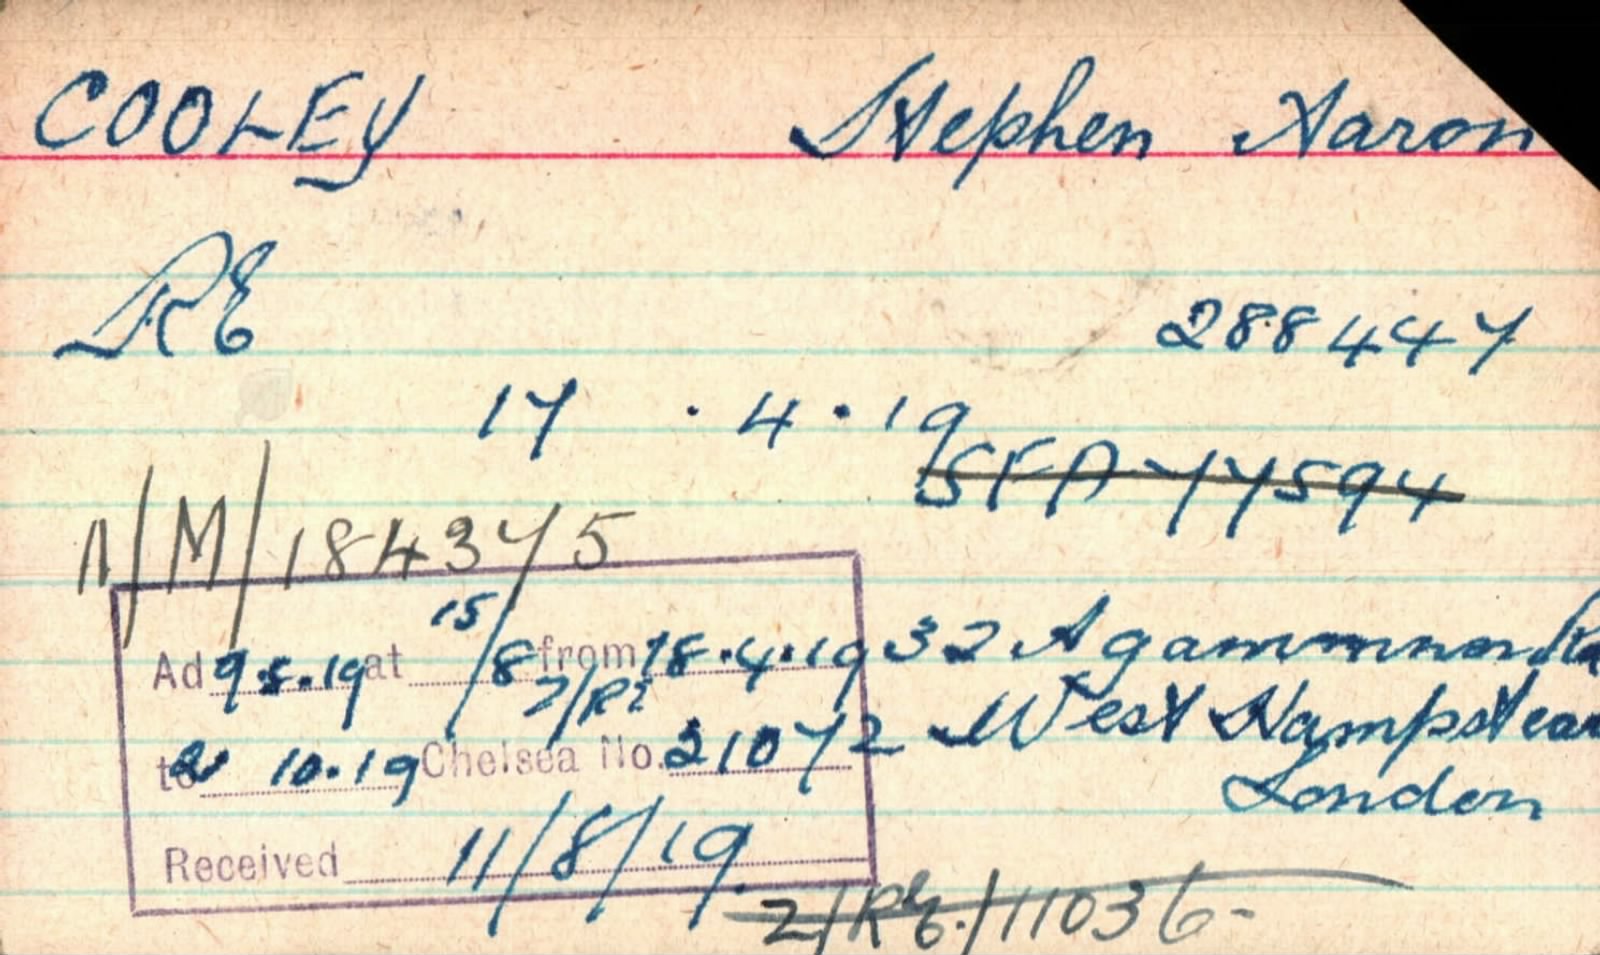 COOLEY Stephen Aaron
RE
288447
17 . 4 . 19
SFA 77594
N/M/184375
Ad 9.5.19 at 15/8 from 18.4.19
32 Agammnon Rd
2/RE
West Hampstead
to 10.19 Chelsea No. 21072
London
Received 11/8/19.
2/RE/11036-